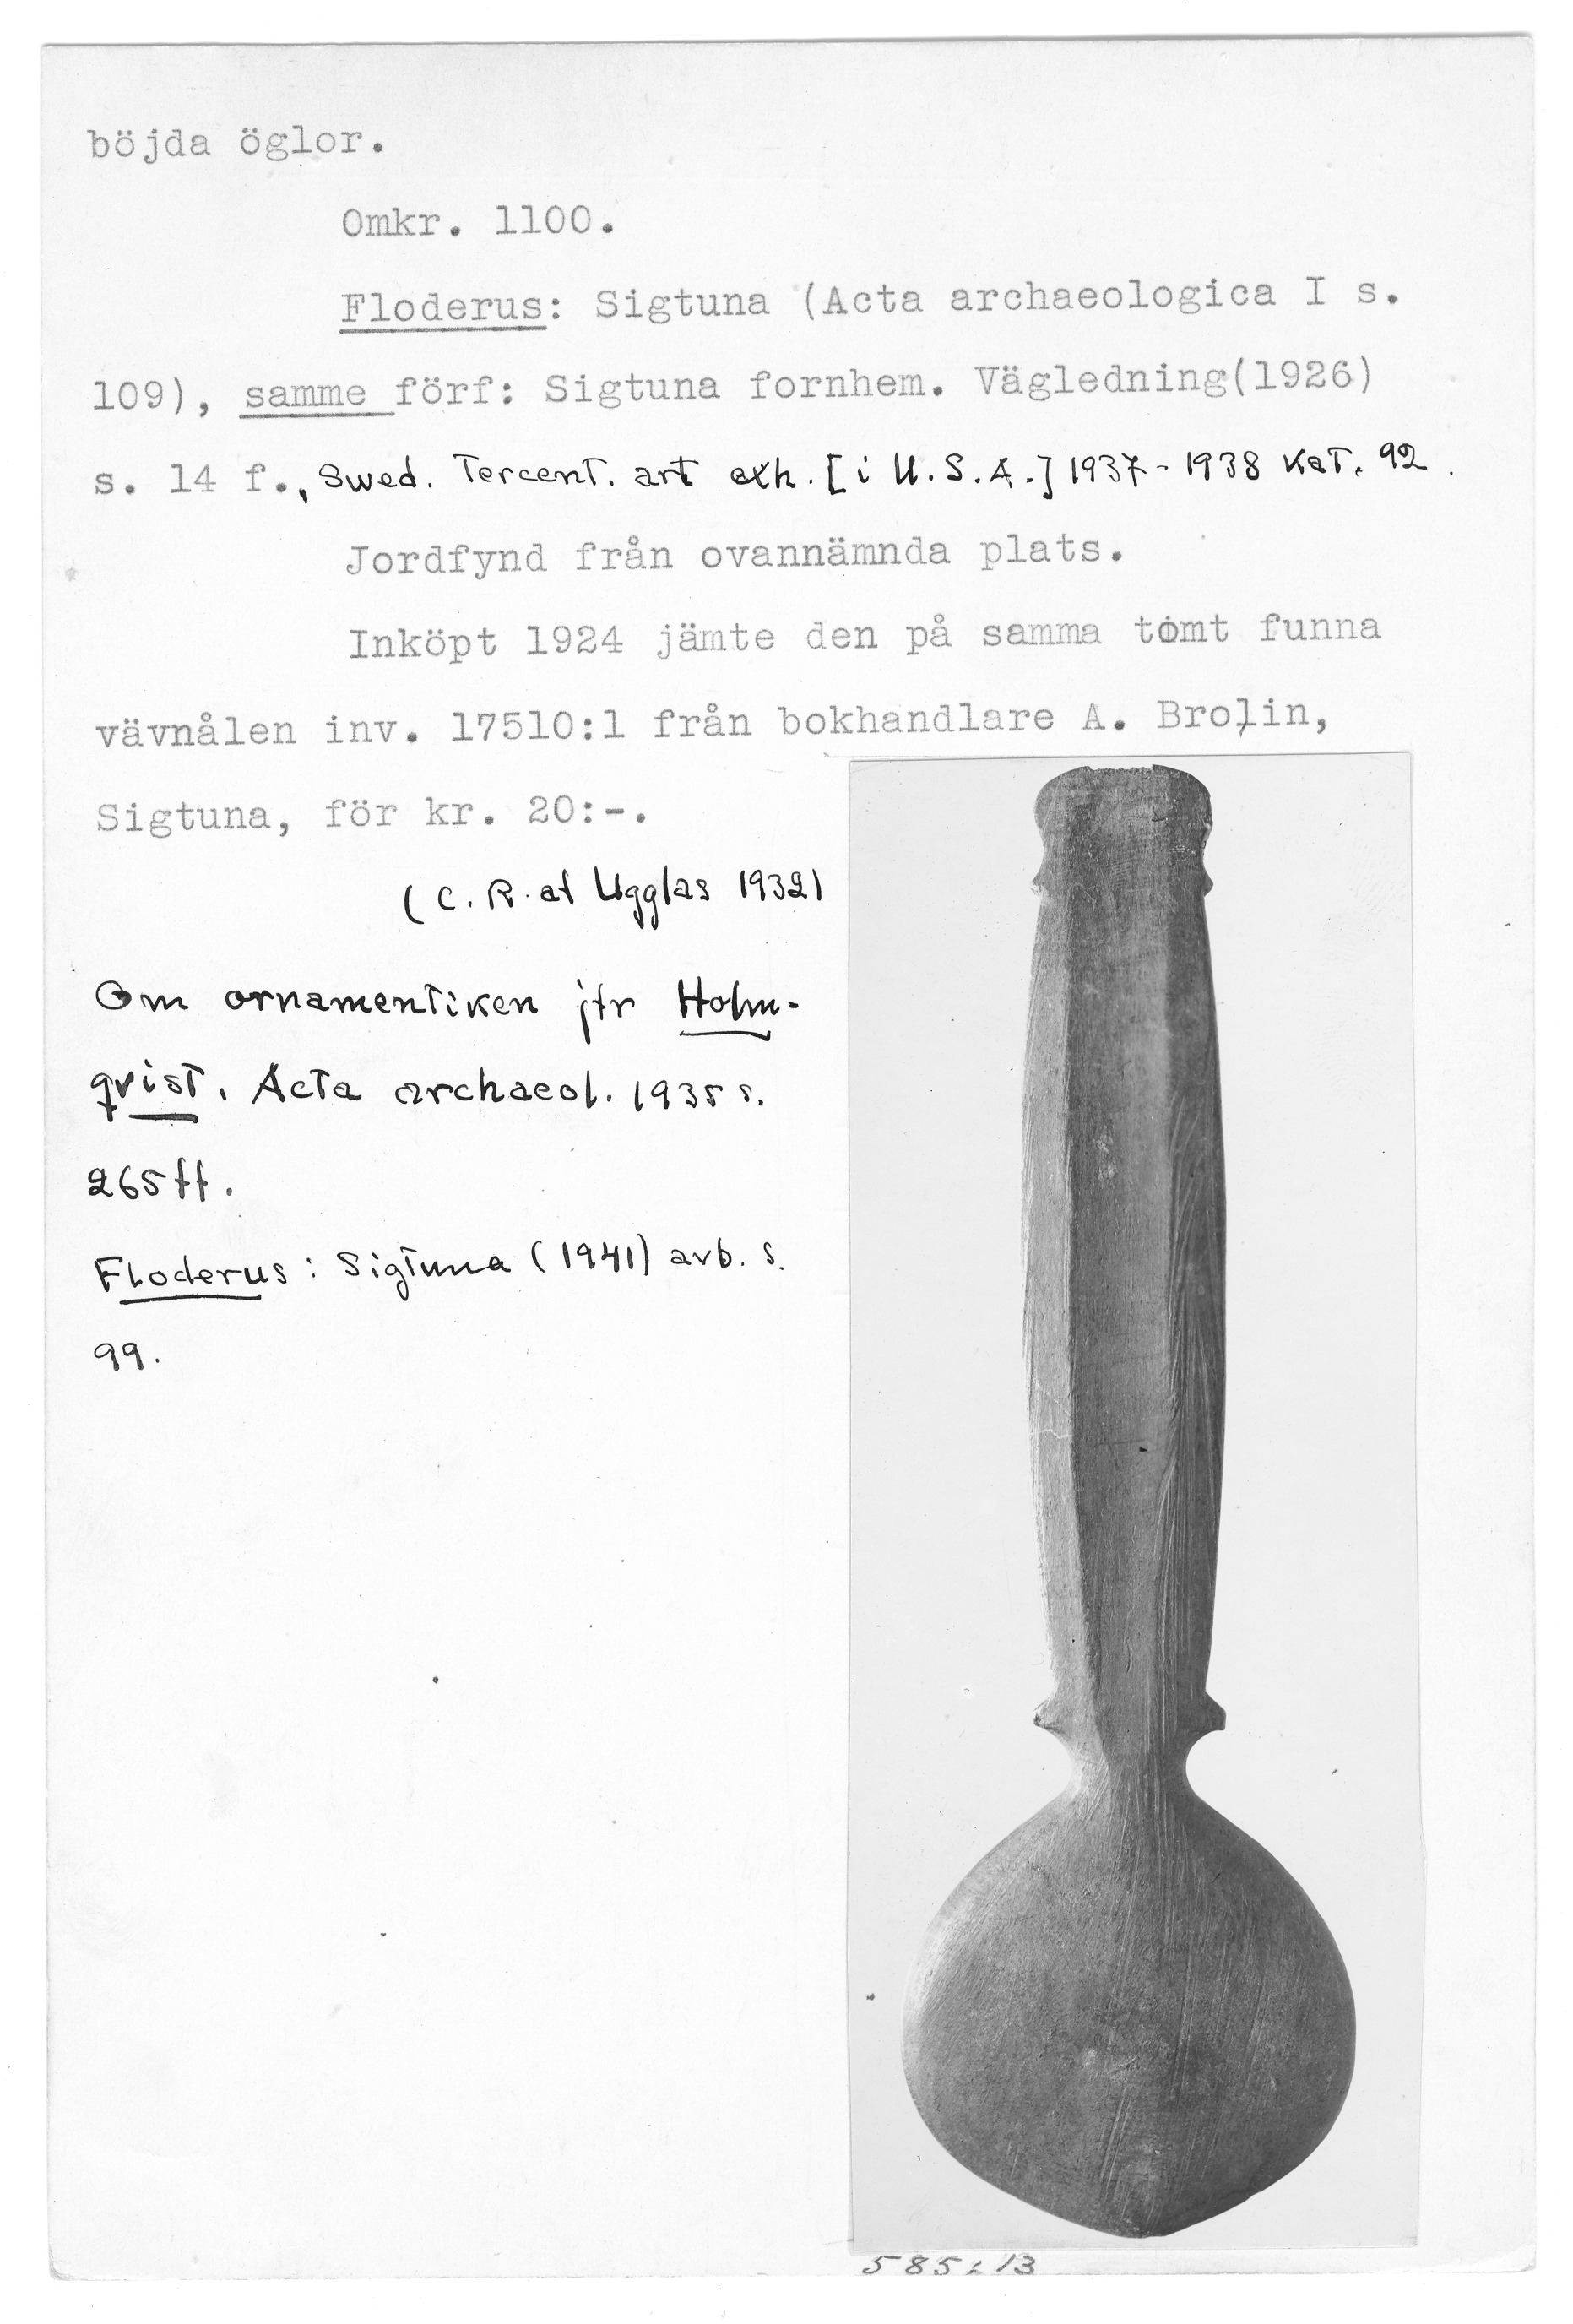 böjda öglor.
Omkr. 1100.
Floderus: Sigtuna (Acta archaeologica I s.
109), samme förf: Sigtuna fornhem. Vägledning(1926)
s. 14 f., Swed. Tercent. art exh. [i U.S.A.] 1937-1938 Kat. 92.
Jordfynd från ovannämnda plats.
Inköpt 1924 jämte den på samma tomt funna
vävnålen inv. 17510:1 från bokhandlare A. Brolin,
Sigtuna, för kr. 20:-.
(C. R. af Ugglas 1932)
Om ornamentiken jfr Holm-
qvist, Acta archaeol. 1935 s.
265 ff.
Floderus: Sigtuna (1941) avb. s.
99.
585:13